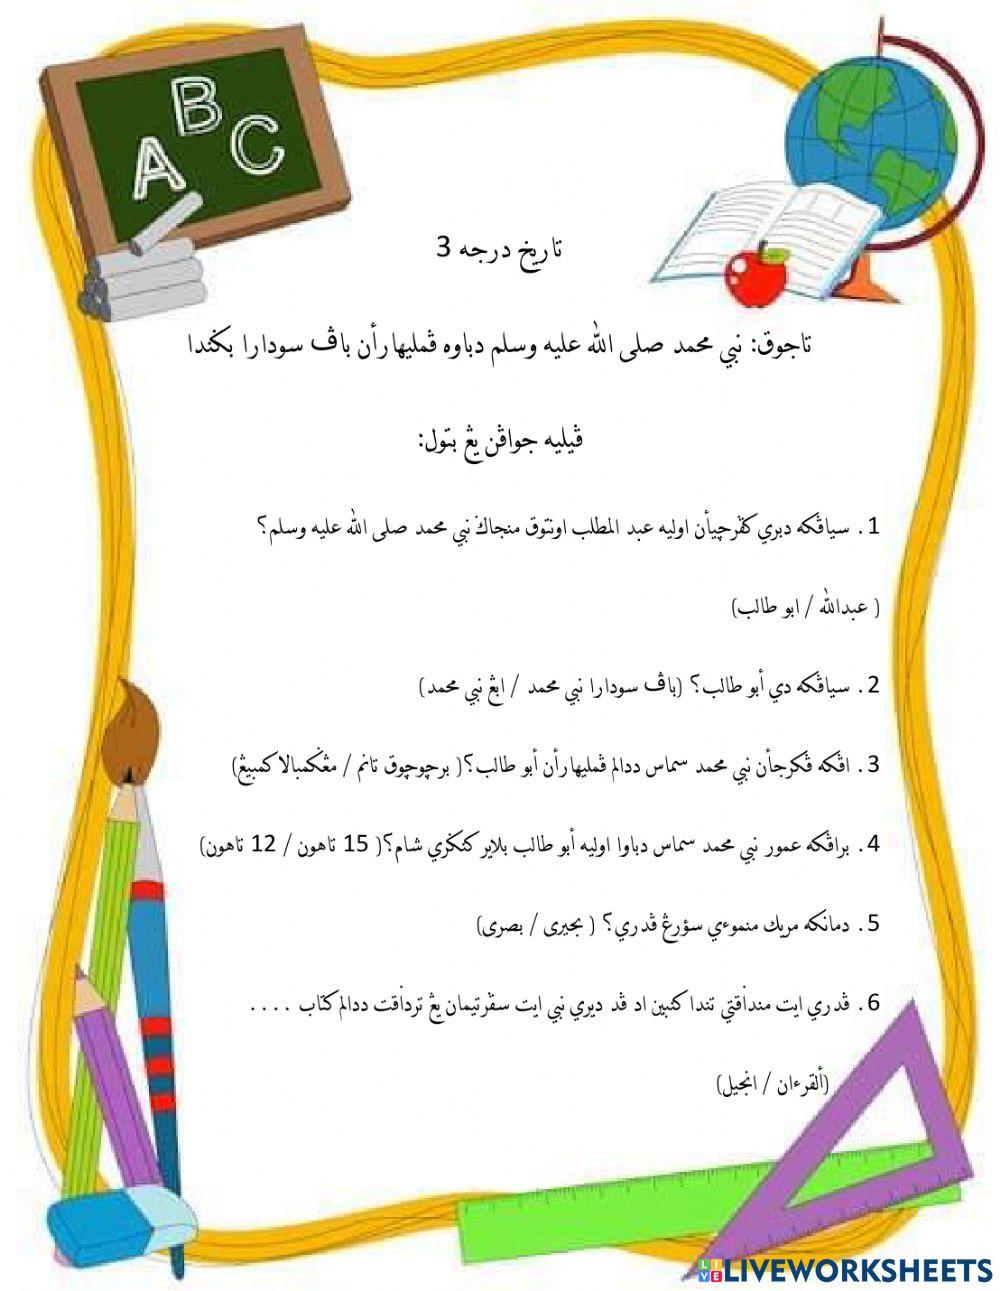 A B C
تاريخ درجه 3
تاجوق: نبي محمد صلى الله عليه وسلم دباوه ڤمليهارأن باڤ سودارا بݢيندا
ڤيليه جواڤن يڠ بتول:
1. سياڤکه دبري کڤرچيأن اوليه عبد المطلب اونتوق منجاݢ نبي محمد صلى الله عليه وسلم؟
( عبدالله / ابو طالب)
2. سياڤکه دي أبو طالب؟ (باڤ سودارا نبي محمد / ابڠ نبي محمد)
3. اڤکه ڤکرجأن نبي محمد سماس ددالم ڤمليهارأن أبو طالب؟( برچوچوق تانم / مڠݢمبالا کمبيڠ)
4. براڤکه عمور نبي محمد سماس دباوا اوليه أبو طالب بلاير کنݢري شام؟( 15 تاهون / 12 تاهون)
5. دمانکه مريك منموءي سؤرڠ ڤدري؟ ( بحيرى / بصرى)
6. ڤدري ايت منداڤتي تندا کنبين اد ڤد ديري نبي ايت سڤرتيمان يڠ ترداڤت ددالم کتاب . . . .
(ألقرءان / انجيل)
LIVEWORKSHEETS